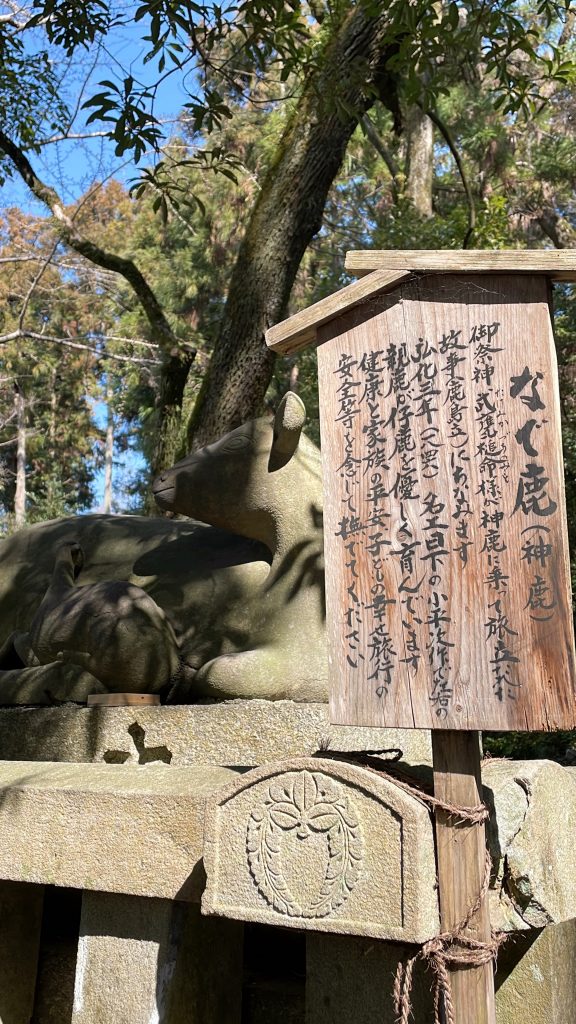 なで鹿(神鹿)
御祭神 武甕槌命様が神鹿に乗って旅立れた
たけみかづちのみこと
故事鹿島立にちなみます
弘化三年(一八四六) 名工日下の小平次作で
親鹿が仔鹿を優しく育んでいます
健康と家族の平安子どもの幸せ旅行の
安全等を念じて撫でてください